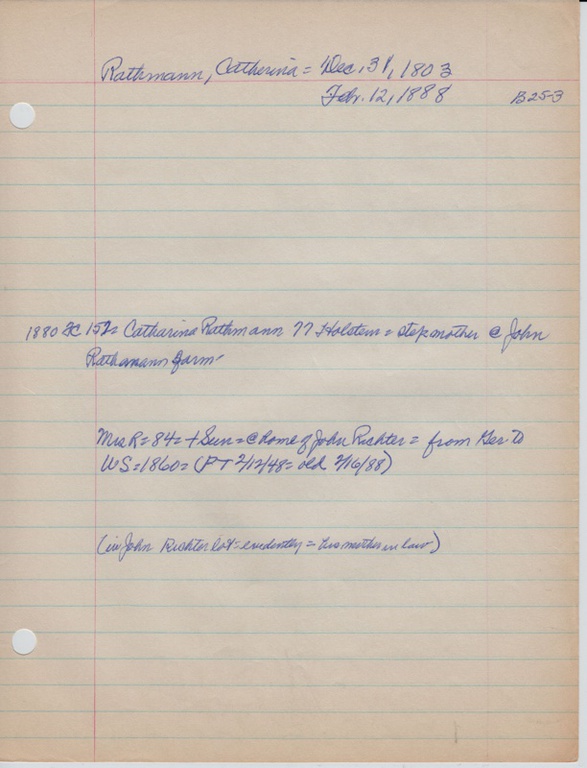 Rathmann, Catherina = Dec. 31, 1803
Feb. 12, 1888 B25-3
1880 SC 152= Catharina Rathmann 77 Holstein = stepmother @ John
Rathmann farm
Mrs R = 84 = + Sun = @ home of John Rishter = from Ger to
US = 1860 = (PT 2/12/48 = old 2/16/88)
(in John Rishter lot = evidently = his mother in law)